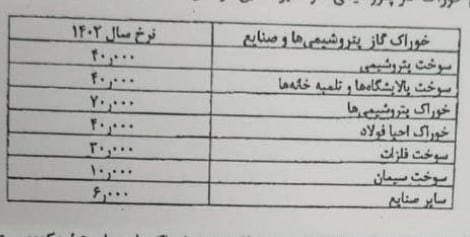 خوراک گاز پتروشیمی‌ها و صنایع نرخ سال ۱۴۰۲
سوخت پتروشیمی ۴۰٫۰۰۰
سوخت پالایشگاه‌ها و تلمبه خانه‌ها ۴۰٫۰۰۰
خوراک پتروشیمی‌ها ۷۰٫۰۰۰
خوراک احیا فولاد ۴۰٫۰۰۰
سوخت فلزات ۳۰٫۰۰۰
سوخت سیمان ۱۰٫۰۰۰
سایر صنایع ۶٫۰۰۰